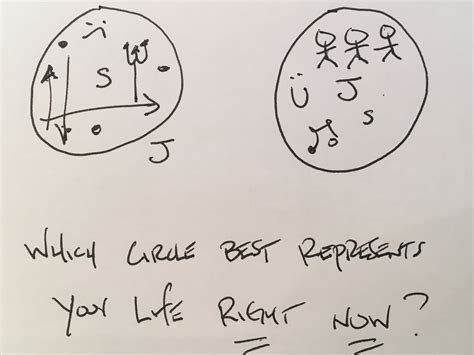 S J
S
J
WHICH CIRCLE BEST REPRESENTS
YOUR LIFE RIGHT NOW?